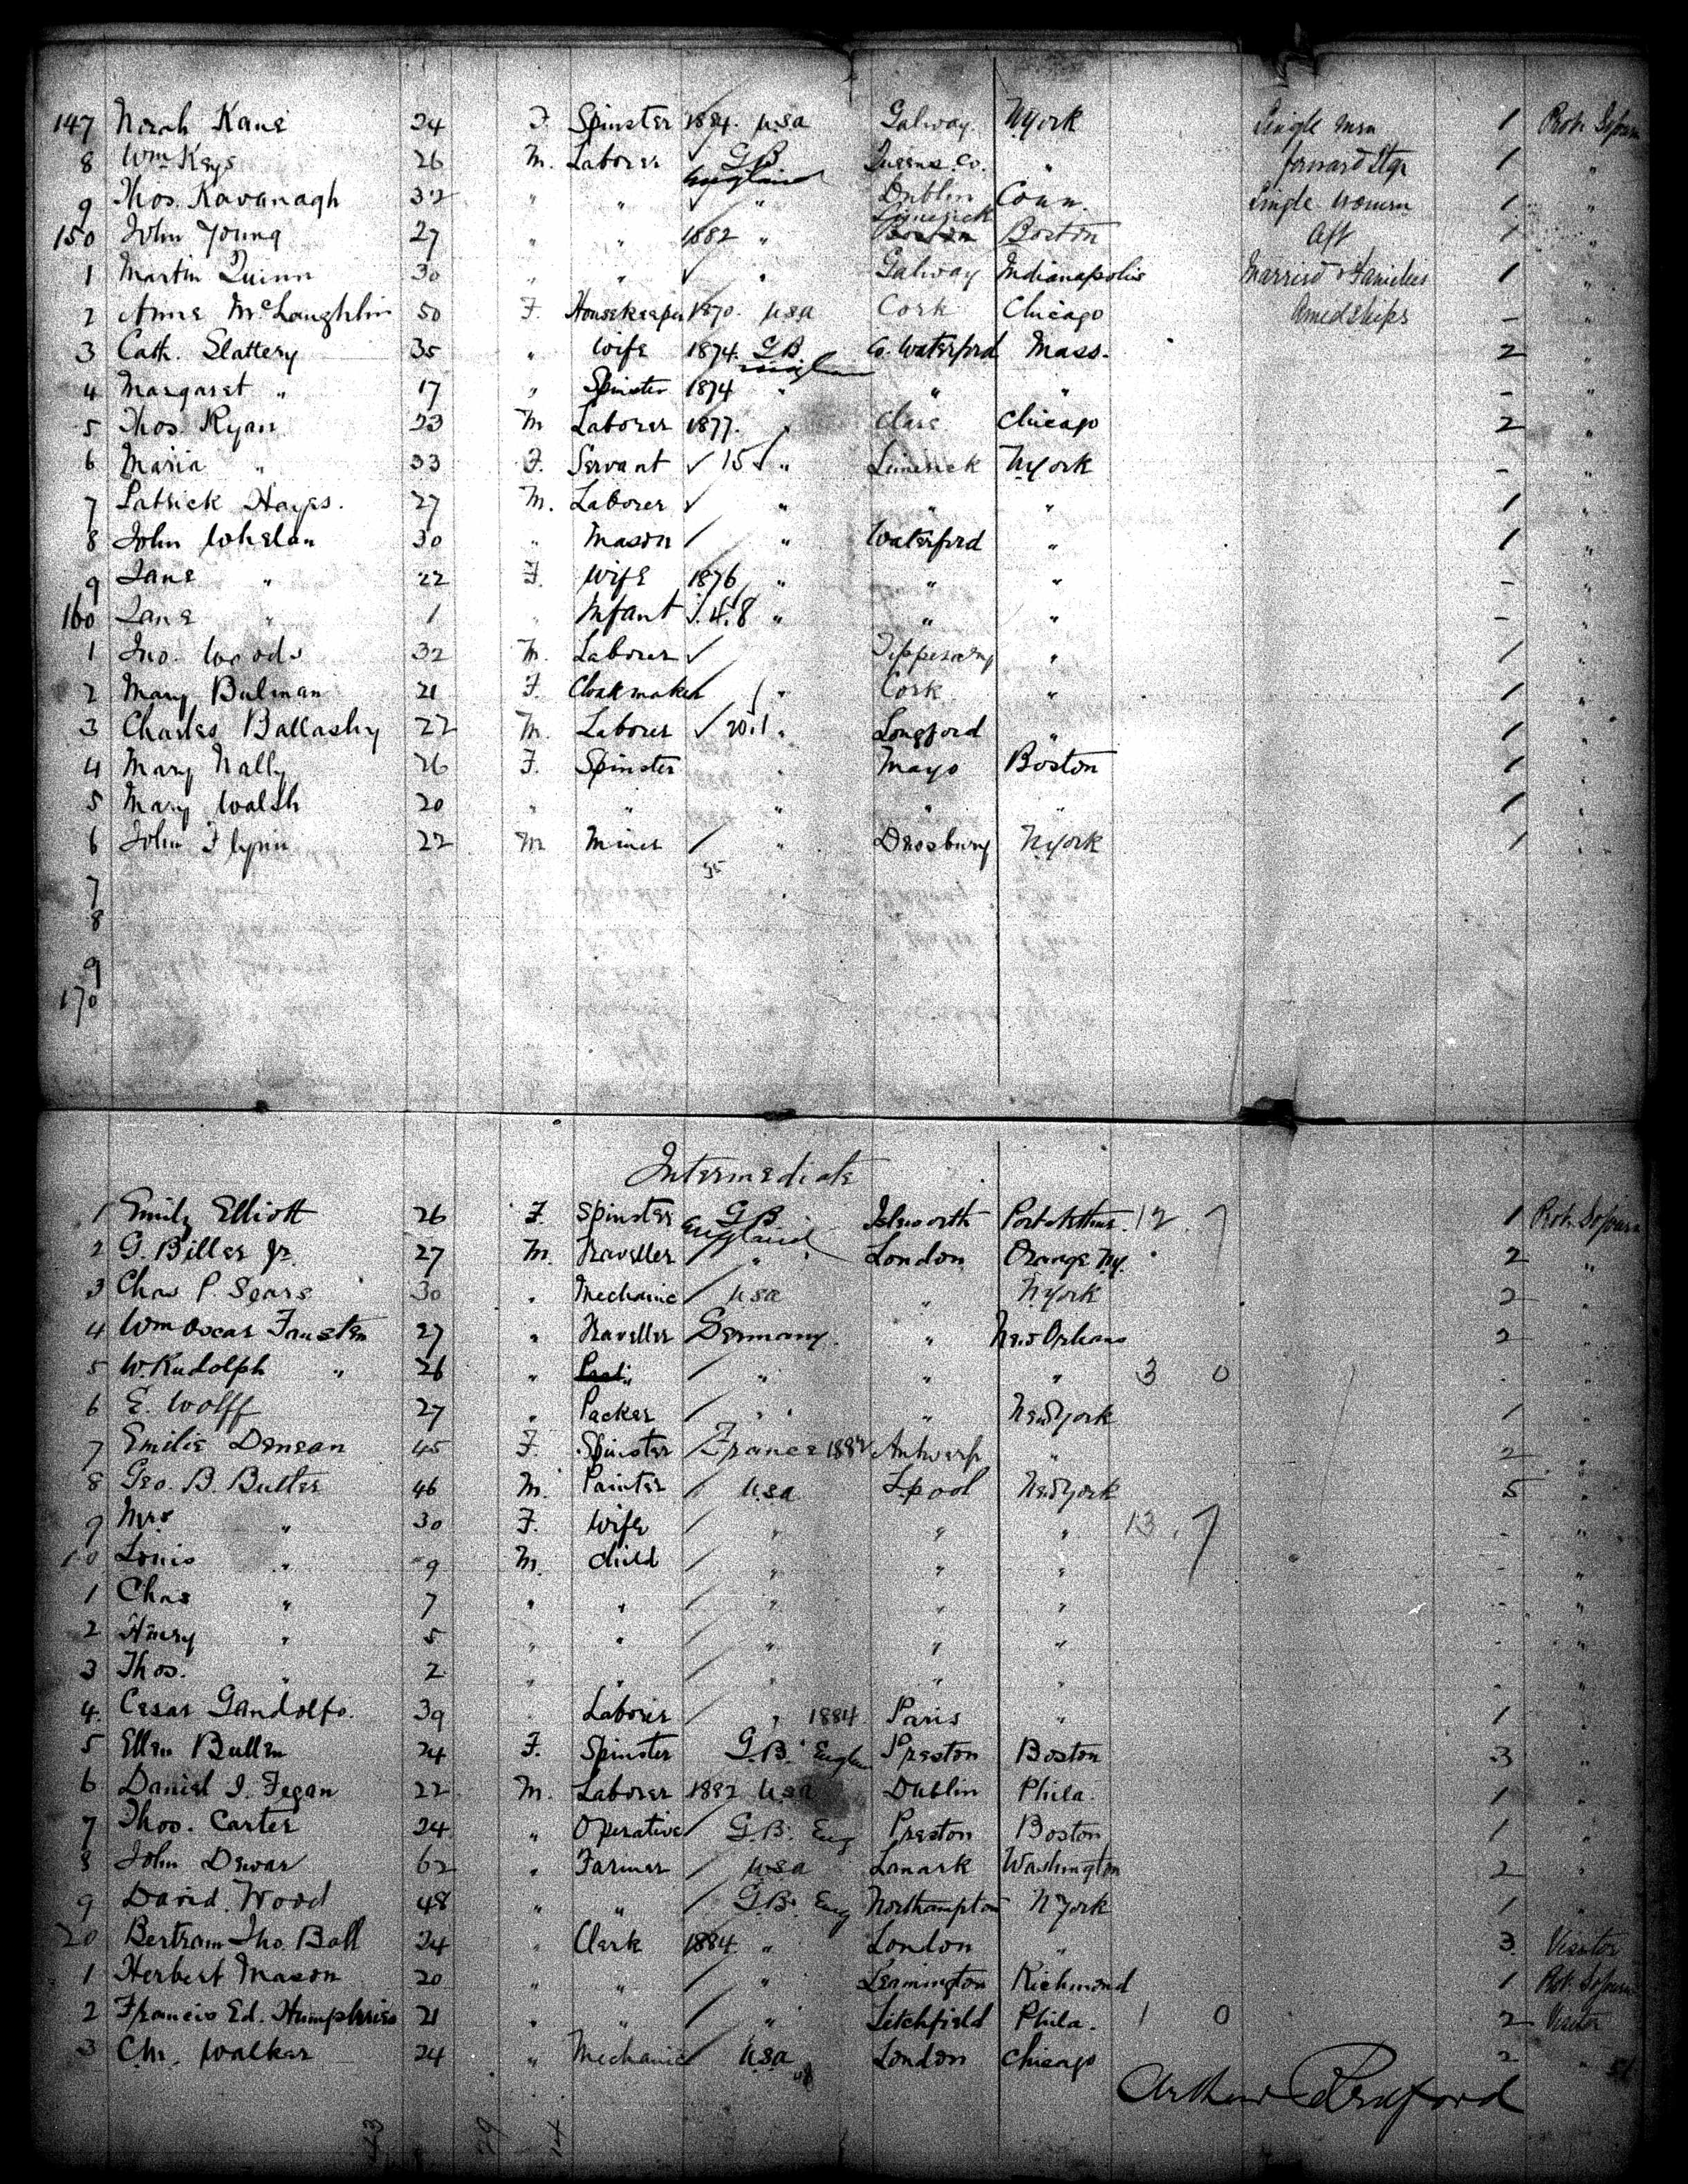 147 Norah Kane 24 F. Spinster 1884. USA Galway NYork Single Men 1 Prob. Sojourn
8 Wm Keys 26 M. Laborer G B England Queens Co. " forward Stge 1 "
9 Thos. Kavanagh 32 " " " Dublin Conn. Single Women 1 "
150 John Young 27 " " 1882 " Limerick Boston Aft 1 "
1 Martin Quinn 30 " " " Galway Indianapolis Married & Families 1 "
2 Anne McLaughlin 50 F. Housekeeper 1870. USA Cork Chicago Amidships - "
3 Cath. Slattery 35 " Wife 1874. G B. Co. Waterford Mass. 2 "
4 Margaret " 17 " Spinster 1874 " " " - "
5 Thos. Ryan 23 M Laborer 1877. " Clare Chicago 2 "
6 Maria " 33 F. Servant 15 " Limerick NYork - "
7 Patrick Hayes. 27 M. Laborer " " " 1 "
8 John Whelan 30 " Mason " Waterford " 1 "
9 Jane " 22 F. Wife 1876 " " " - "
160 Jane " 1 " Infant 4.8 " " " - "
1 Jno. Woods 32 M. Laborer Tipperary " 1 "
2 Mary Bulman 21 F. Cloakmaker " Cork " 1 "
3 Charles Ballashy 22 M. Laborer 20.1 " Longford " 1 "
4 Mary Nally 26 F. Spinster " Mayo Boston 1 "
5 Mary Walsh 20 " " " " " 1 "
6 John Flynn 22 M Miner " Dewsbury NYork 1 "
7
8
9
170
Intermediate
1 Emily Elliott 26 F. Spinster G B. England Isleworth Port Arthur. 12 7 1 Prob. Sojourn
2 G. Biller Jr. 27 M. Traveller " London Orange NY. 2 "
3 Chas P. Sears 30 " Mechanic USA " NYork 2 "
4 Wm Oscar Fausten 27 " Traveller Germany. " New Orleans 2 "
5 W. Rudolph " 26 " " " " 3 0 "
6 E. Wolff 27 " Packer " " New York 1 "
7 Emilie Denean 45 F. Spinster France 1882 Antwerp " 2 "
8 Geo. B. Butler 46 M. Painter USA Lpool New York 5 "
9 Mrs " 30 F. Wife " " " 13. 7 - "
10 Louis " 9 M. Child " " " "
1 Chas " 7 " " " " " - "
2 Henry " 5 " " " " " - "
3 Thos. " 2 " " " " " - "
4. Cesar Gandolfo. 39 " Laborer " 1884. Paris " 1 "
5 Ellen Bullen 24 F. Spinster G.B. Preston Boston 3 "
6 Daniel J. Fegan 22 M. Laborer 1882 USA Dublin Phila. 1 "
7 Thos. Carter 24 " Operative G.B. Eng Preston Boston 1 "
8 John Dewar 62 " Farmer USA Lanark Washington 2 "
9 David. Wood 48 " " G.B. Eng Northampton NYork 1 "
20 Bertram Tho. Ball 24 " Clerk 1884. " London " 3. Visitor
1 Herbert Mason 20 " " " Leamington Richmond 1 Prob. Sojourn
2 Francis Ed. Humphries 21 " " " Litchfield Phila. 1 0 2 Visitor
3 Chr. Walker 24 " Mechanic USA London Chicago 2 "